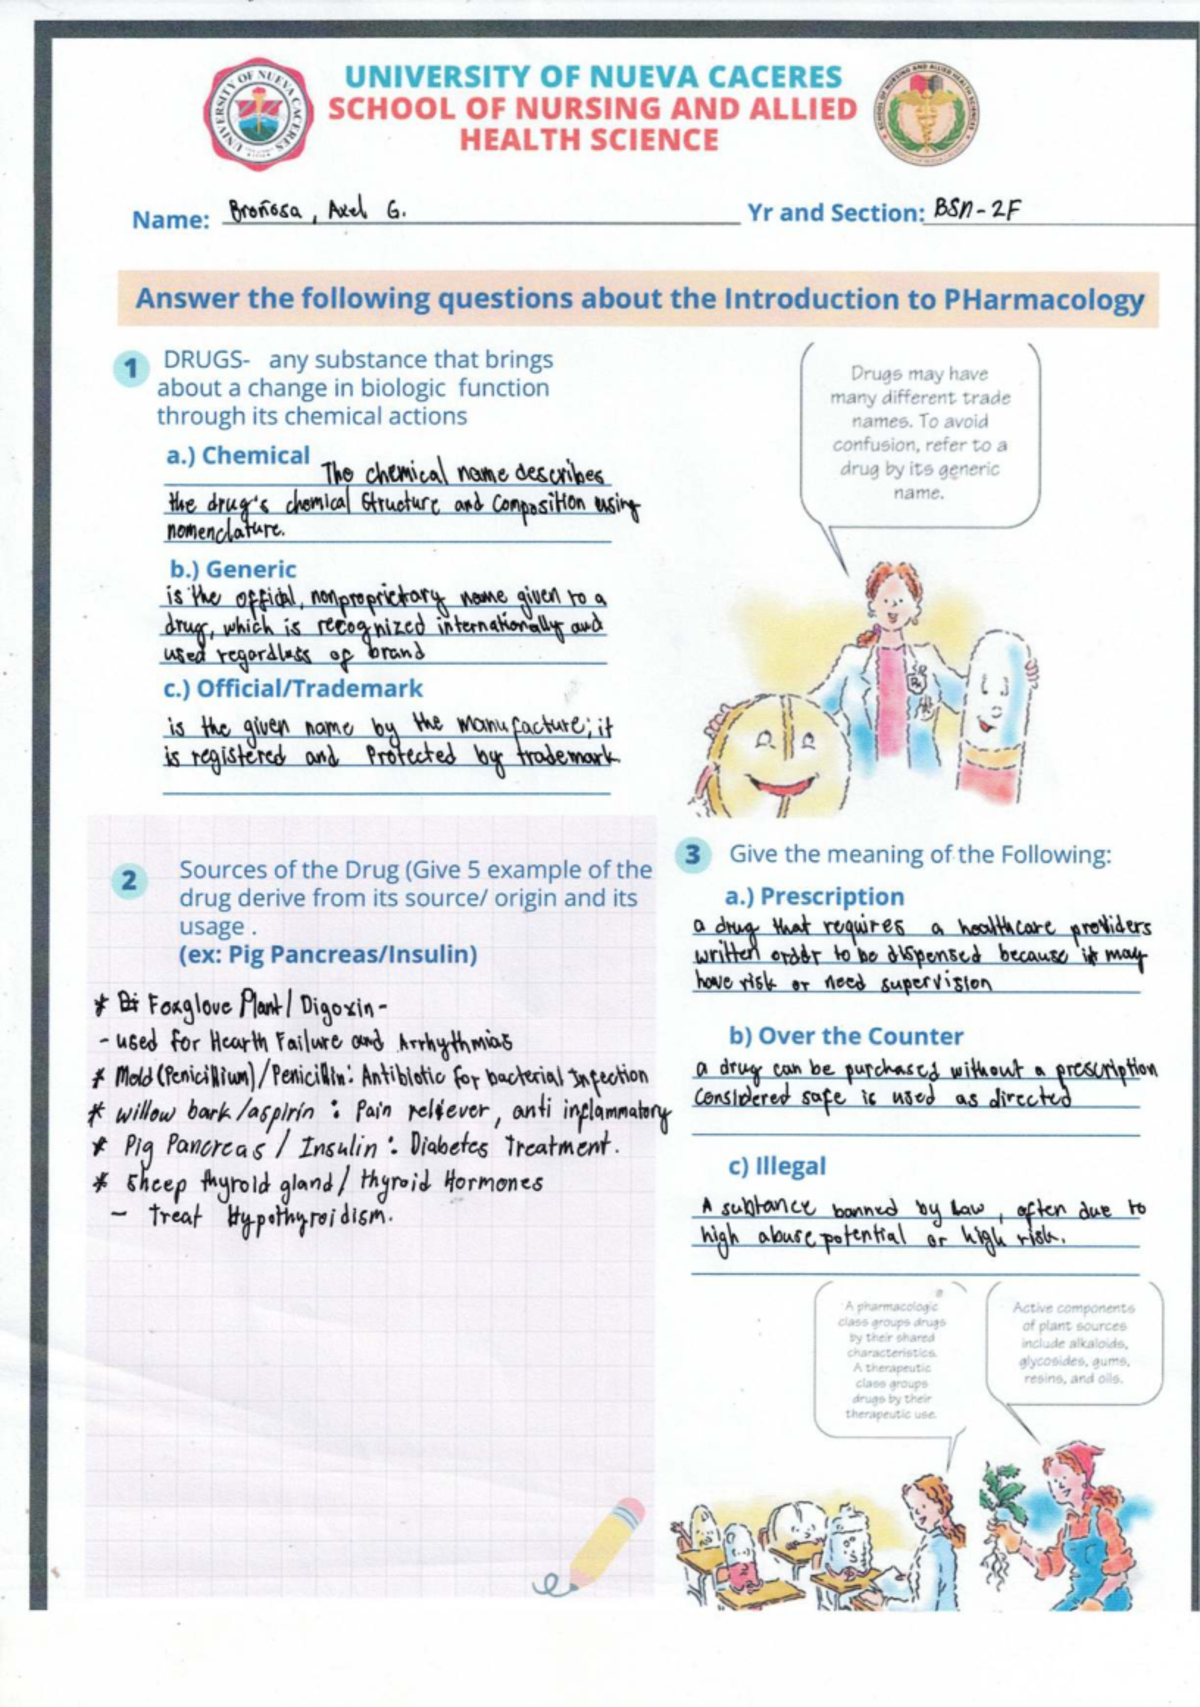 UNIVERSITY OF NUEVA CACERES
SCHOOL OF NURSING AND ALLIED
HEALTH SCIENCE
UNIVERSITY OF NUEVA CACERES
SCHOOL OF NURSING AND ALLIED HEALTH SCIENCES
Name: Broñosa, Axel G.
Yr and Section: BSN-2F
Answer the following questions about the Introduction to PHarmacology
1 DRUGS- any substance that brings
about a change in biologic function
through its chemical actions
a.) Chemical
The chemical name describes
the drug's chemical Structure and Composition using
nomenclature.
b.) Generic
is the official, nonproprietary name given to a
drug, which is recognized internationally and
used regardless of brand
c.) Official/Trademark
is the given name by the manufacture; it
is registered and Protected by trademark
Drugs may have
many different trade
names. To avoid
confusion, refer to a
drug by its generic
name.
2 Sources of the Drug (Give 5 example of the
drug derive from its source/ origin and its
usage .
(ex: Pig Pancreas/Insulin)
* Foxglove Plant / Digoxin -
- used for Hearth Failure and Arrhythmias
* Mold (Penicillium) / Penicillin: Antibiotic for bacterial Infection
* willow bark /aspirin : Pain reliever, anti inflammatory
* Pig Pancreas / Insulin : Diabetes Treatment.
* Sheep thyroid gland / thyroid Hormones
- Treat Hypothyroidism.
3 Give the meaning of the Following:
a.) Prescription
a drug that requires a healthcare providers
written order to be dispensed because it may
have risk or need supervision
b) Over the Counter
a drug can be purchased without a prescription
Considered safe is used as directed
c) Illegal
A subtance banned by Law, often due to
high abuse potential or high risk.
A pharmacologic
class groups drugs
by their shared
characteristics.
A therapeutic
class groups
drugs by their
therapeutic use.
Active components
of plant sources
include alkaloids,
glycosides, gums,
resins, and oils.